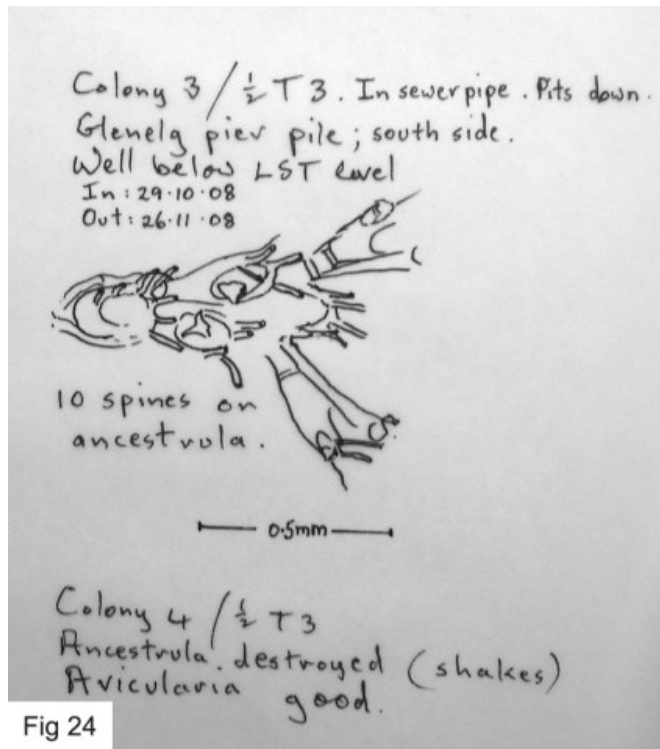 Colony 3 / ½ T 3. In sewerpipe. Pits down.
Glenelg pier pile; south side.
Well below LST level
In: 29.10.08
Out: 26.11.08
10 spines on
ancestrula.
0.5mm
Colony 4 / ½ T3
Ancestrula destroyed (shakes)
Avicularia good.
Fig 24